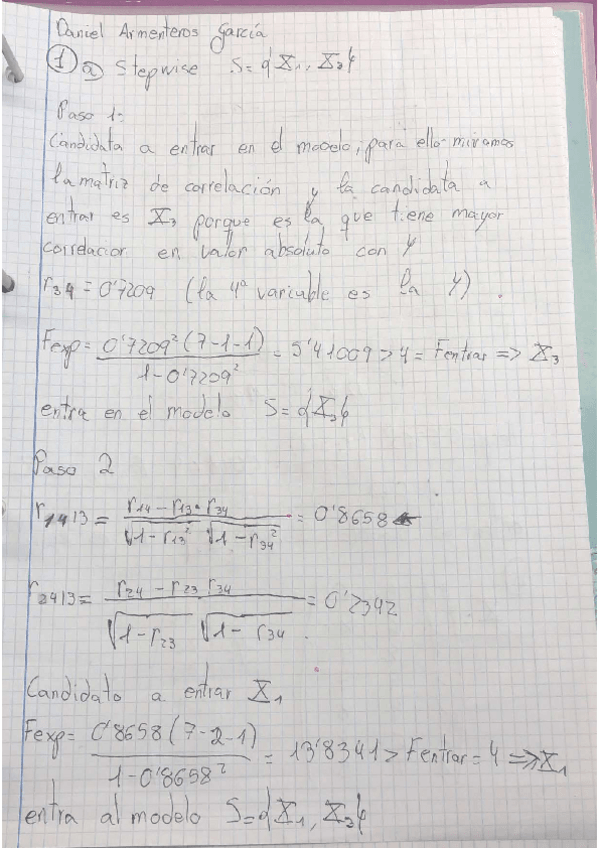 Daniel Armenteros García
① ⓐ Stepwise S={X₁, X₃}
Paso 1:
Candidata a entrar en el modelo, para ello miramos
la matriz de correlación y la candidata a
entrar es X₃ porque es la que tiene mayor
correlacion en valor absoluto con Y
r₃₄ = 0'7209 (la 4ª variable es la Y).
Fexp = 0'7209² (7-1-1) / 1-0'7209² = 5'41009 > 4 = Fentrar => X₃
entra en el modelo S={X₃}
Paso 2
r₁₄|₃ = r₁₄ - r₁₃ · r₃₄ / √1-r₁₃² √1-r₃₄² = 0'8658
r₂₄|₃ = r₂₄ - r₂₃ r₃₄ / √1-r₂₃ √1-r₃₄ = 0'2392
Candidato a entrar X₁
Fexp = 0'8658 (7-2-1) / 1-0'8658² = 13'8341 > Fentrar = 4 => X₁
entra al modelo S={X₁, X₃}